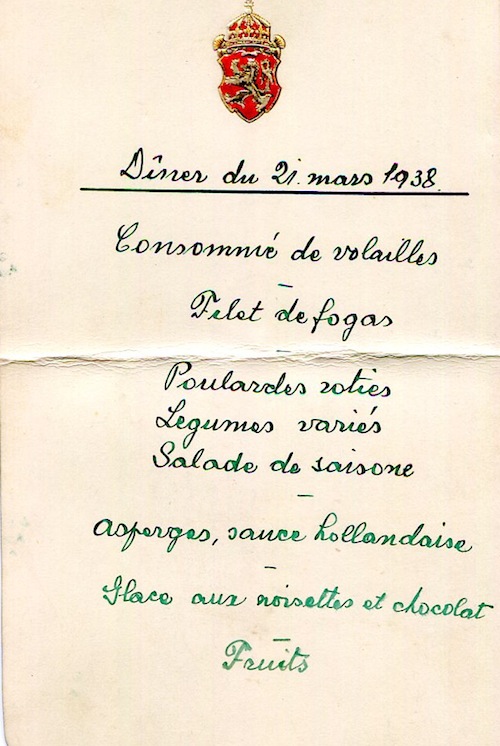 Dîner du 21. mars 1938.
Consommé de volailles
Filet de fogas
Poulardes roties
Legumes variés
Salade de saisone
Asperges, sauce hollandaise
Glace aux noisettes et chocolat
Fruits